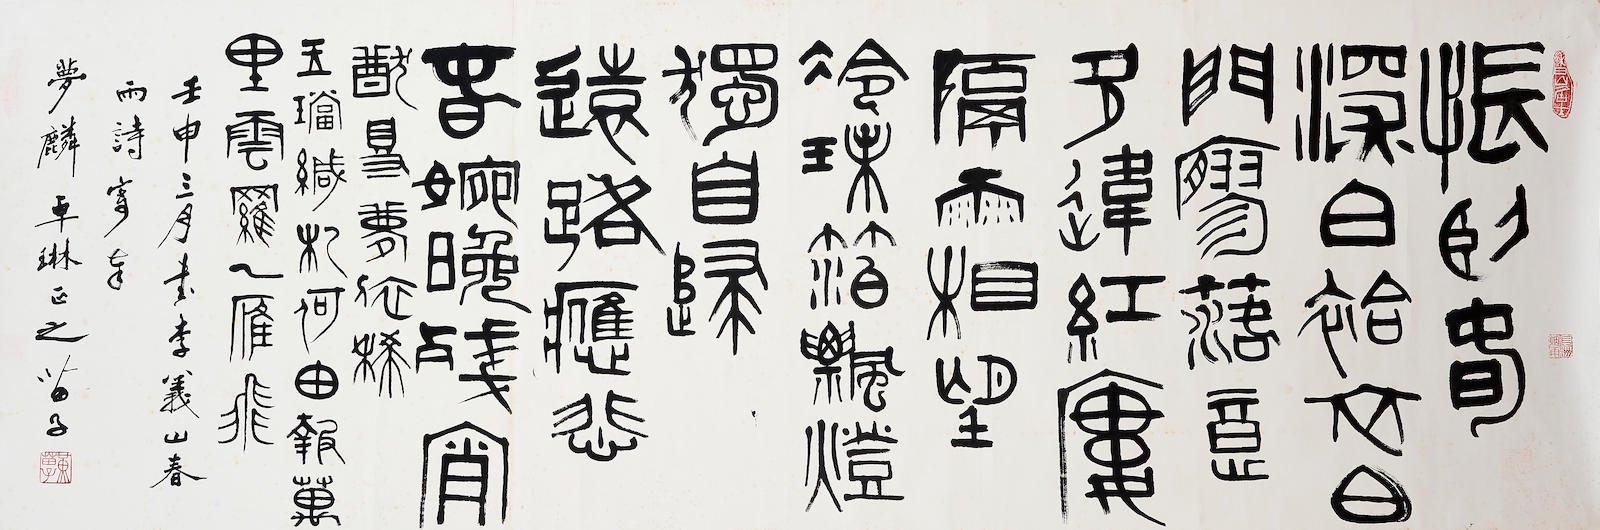 悵臥春
深白袷衣白
門寥落意
多違紅廔
隔雨相望
冷珠箔飄燈
獨自歸
遠路應悲
春晼晚殘宵
猷得夢依稀
玉璫緘札何由報萬
里雲羅一雁飛
壬申三月書李義山春
雨詩寫奉
夢麟卓琳正之苗子